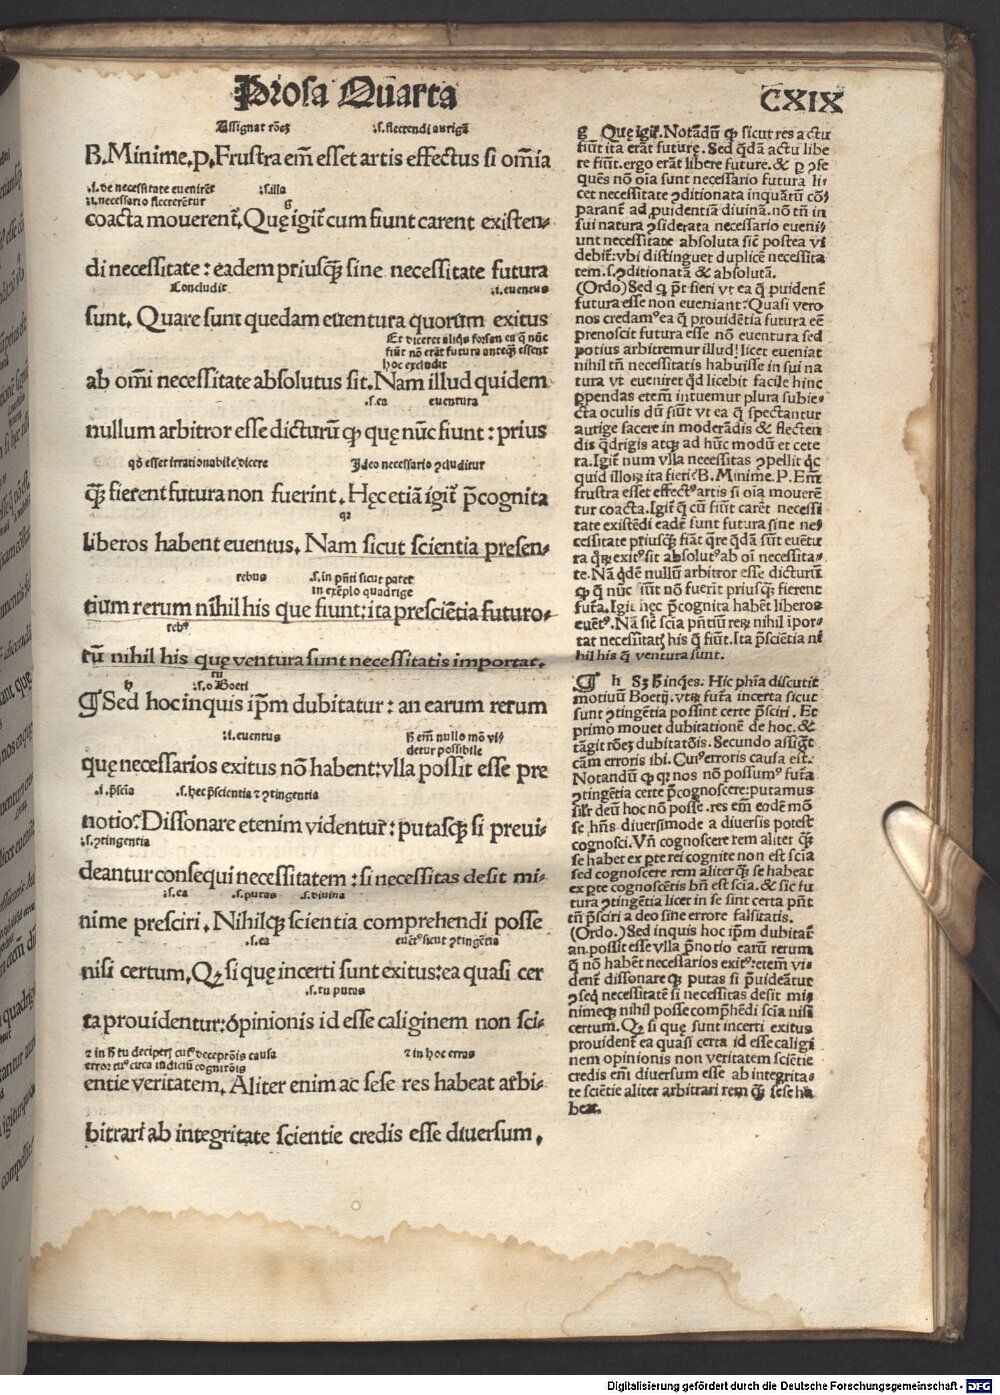 Prosa Quarta
CXIX
Assignat rõeȝ .s. flectendi aurigã
B. Minime. p. Frustra em̃ esset artis effectus si om̃ia
.i. de necessitate evenirēt .s. illa
.i. necessario flecterētur g
coacta mouerent̃. Quę igit̃ cum fiunt carent existen-
di necessitate: eadem priusq̃ȝ sine necessitate futura
Concludit .i. euentus
sunt. Quare sunt quedam euentura quorum exitus
Et diceret aliq̃s forsan ea q̃ nũc
fiũt nõ erãt futura anteq̃ȝ essent
hoc excludit
ab om̃i necessitate absolutus sit. Nam illud quidem
.s. ea euentura
nullum arbitror esse dicturũ ꝙ quę nũc fiunt: prius
qđ esset irrationabile dicere Ideo necessario ꝯcluditur
q̃ȝ fierent futura non fuerint. Hęc etiã igit̃ p̃cognita
liberos habent euentus. Nam sicut scientia presen-
rebus .s. in p̃nti sicut patet
in exẽplo quadrige
tium rerum nihil his que fiunt: ita presciẽtia futuro-
rebꝰ
rũ nihil his quę ventura sunt necessitatis importat.
h tu .s. o Boeti
¶ Sed hoc inquis ip̃m dubitatur: an earum rerum
.i. euentus ħ em̃ nullo mõ vi-
detur possibile
quę necessarios exitus nõ habent: vlla possit esse pre
.i. p̃scia .s. hec p̃scientia ⁊ ꝯtingentia
notio? Dissonare etenim videntur̃: putasq̃ȝ si preui-
.s. ꝯtingentia
deantur consequi necessitatem: si necessitas desit mi-
.s. ea .s. putas .s. divina
nime presciri. Nihilq̃ȝ scientia comprehendi posse
.s. ea euẽtꝰ sicut ꝯtingẽtia
nisi certum. Qȝ si quę incerti sunt exitus: ea quasi cer
.s. tu putas
ta prouidentur: opinionis id esse caliginem non sci-
⁊ in ħ tu deciperȝ cuiꝰ deceptõis causa ⁊ in hoc erras
error tuꝰ circa iudiciũ cognitõis
entie veritatem. Aliter enim ac sese res habeat arbi-
bitrari ab integritate scientie credis esse diuersum.
g Quę igit̃. Notãdũ ꝙ sicut res actu
fiũt ita erãt future. Sed q̃dã actu libe
re fiũt. ergo erãt libere future. & ꝑ ꝯse
quẽs nõ oĩa sunt necessario futura li-
cet necessitate ꝯditionata inquãtũ cõ-
parant̃ ad ꝓuidentiã diuinã. nõ tñ in
sui natura ꝯsiderata necessario eueni-
unt necessitate absoluta sic̃ postea vi
debit̃: vbi distinguet duplicẽ necessita
tem .s. ꝯditionatã & absolutã.
(Ordo) Sed q̃ p̃t fieri vt ea q̃ ꝓuident̃
futura esse non eueniant? Quasi vero
nos credamꝰ ea q̃ prouidẽtia futura eẽ
prenoscit futura esse nõ euentura sed
potius arbitremur illud! licet eueniat
nihil tñ necessitatis habuisse in sui na
tura vt eueniret qđ licebit facile hinc
ꝑpendas etem̃ intuemur plura subie-
cta oculis dũ fiũt vt ea q̃ spectantur
aurige facere in moderãdis & flecten
dis q̃drigis atqȝ ad hũc modũ et cete
ra. Igit̃ num vlla necessitas ꝯpellit q̃c
quid illoꝝ ita fieri? B. Minime. P. Em̃
frustra esset effectꝰ artis si oĩa mouerẽ
tur coacta. Igit̃ q̃ cũ fiũt carẽt necessi
tate existẽdi eadẽ sunt futura sine ne-
cessitate priusq̃ȝ fiãt q̃re q̃dã sũt euẽtu
ra q̃ꝝ exitꝰ sit absolutꝰ ab oĩ necessita-
te. Nã q̃dẽ nullũ arbitror esse dicturũ
ꝙ q̃ nũc fiũt nõ fuerĩt priusq̃ȝ fierent
fut̃a. Igit̃ hęc p̃cognita habẽt liberos
euẽtꝰ. Nã sic̃ scĩa p̃ntiũ reꝝ nihil ipor-
tat necessitatȝ his q̃ fiũt. Ita p̃sciẽtia ni
hil his q̃ ventura sunt.
¶ h Sȝ ħ inq̃es. Hic ph̃ia discutit
motiuũ Boetij. vtꝝ fut̃a incerta sicut
sunt ꝯtingẽtia possint certe p̃sciri. Et
primo mouet dubitationẽ de hoc. &
tãgit rõeȝ dubitatõis. Secundo assig̃t
cãm erroris ibi. Cuiꝰ erroris causa est.
Notandũ ꝙ qȝ nos nõ possumꝰ fut̃a
ꝯtingẽtia certe p̃cognoscere: putamus
sil̃r deũ hoc nõ posse. res em̃ eodẽ mõ
se hñs diuersimode a diuersis potest
cognosci. Vñ cognoscere rem aliter q̃ȝ
se habet ex ꝑte rei cognite non est scĩa
sed cognoscere rem aliter q̃ȝ se habeat
ex ꝑte cognoscẽtis bñ est scĩa. & sic fu
tura ꝯtingẽtia licet in se sint certa p̃nt
tñ p̃sciri a deo sine errore falsitatis.
(Ordo.) Sed inquis hoc ip̃m dubitat̃
an. possit esse vlla p̃notio earũ rerum
q̃ nõ habẽt necessarios exitꝰ: etem̃ vi-
dent̃ dissonare qȝ putas si p̃uideãtur
ꝯseq̃ necessitatẽ si necessitas desit mi-
nimeqȝ nihil posse comp̃hẽdi scĩa nisi
certum. Qȝ si quę sunt incerti exitus
prouident̃ ea quasi certa id esse caligi
nem opinionis non veritatem sciẽtie
credis em̃ diuersum esse ab integrita-
te sciẽtie aliter arbitrari rem q̃ȝ sese ha
beat.
Digitalisierung gefördert durch die Deutsche Forschungsgemeinschaft - DFG